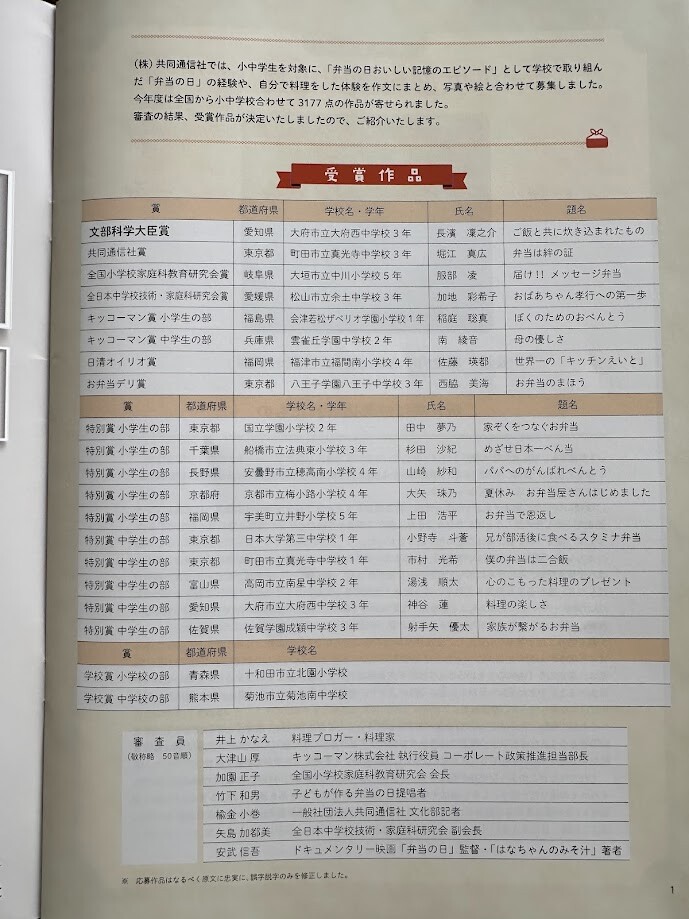 (株)共同通信社では、小中学生を対象に、「弁当の日おいしい記憶のエピソード」として学校で取り組ん
だ「弁当の日」の経験や、自分で料理をした体験を作文にまとめ、写真や絵と合わせて募集しました。
今年度は全国から小中学校合わせて3177点の作品が寄せられました。
審査の結果、受賞作品が決定いたしましたので、ご紹介いたします。
受賞作品
賞 都道府県 学校名・学年 氏名 題名
文部科学大臣賞 愛知県 大府市立大府西中学校3年 長濱 凜之介 ご飯と共に炊き込まれたもの
共同通信社賞 東京都 町田市立真光寺中学校3年 堀江 真広 弁当は絆の証
全国小学校家庭科教育研究会賞 岐阜県 大垣市立中川小学校5年 服部 凌 届け!! メッセージ弁当
全日本中学校技術・家庭科研究会賞 愛媛県 松山市立余土中学校3年 加地 彩希子 おばあちゃん孝行への第一歩
キッコーマン賞 小学生の部 福島県 会津若松ザベリオ学園小学校1年 稲庭 聡真 ぼくのためのおべんとう
キッコーマン賞 中学生の部 兵庫県 雲雀丘学園中学校2年 南 綾音 母の優しさ
日清オイリオ賞 福岡県 福津市立福間南小学校4年 佐藤 瑛都 世界一の「キッチンえいと」
お弁当デリ賞 東京都 八王子学園八王子中学校3年 西脇 美海 お弁当のまほう
賞 都道府県 学校名・学年 氏名 題名
特別賞 小学生の部 東京都 国立学園小学校2年 田中 夢乃 家ぞくをつなぐお弁当
特別賞 小学生の部 千葉県 船橋市立法典東小学校3年 杉田 沙紀 めざせ日本一べん当
特別賞 小学生の部 長野県 安曇野市立穂高南小学校4年 山﨑 紗和 パパへのがんばれべんとう
特別賞 小学生の部 京都府 京都市立梅小路小学校4年 大矢 珠乃 夏休み お弁当屋さんはじめました
特別賞 小学生の部 福岡県 宇美町立井野小学校5年 上田 浩平 お弁当で恩返し
特別賞 中学生の部 東京都 日本大学第三中学校1年 小野寺 斗蒼 兄が部活後に食べるスタミナ弁当
特別賞 中学生の部 東京都 町田市立真光寺中学校1年 市村 光希 僕の弁当は二合飯
特別賞 中学生の部 富山県 高岡市立南星中学校2年 湯浅 順太 心のこもった料理のプレゼント
特別賞 中学生の部 愛知県 大府市立大府西中学校3年 神谷 蓮 料理の楽しさ
特別賞 中学生の部 佐賀県 佐賀学園成穎中学校3年 射手矢 優太 家族が繋がるお弁当
賞 都道府県 学校名
学校賞 小学校の部 青森県 十和田市立北園小学校
学校賞 中学校の部 熊本県 菊池市立菊池南中学校
審査員
(敬称略 50音順)
井上 かなえ 料理ブロガー・料理家
大津山 厚 キッコーマン株式会社 執行役員 コーポレート政策推進担当部長
加園 正子 全国小学校家庭科教育研究会 会長
竹下 和男 子どもが作る弁当の日提唱者
楡金 小巻 一般社団法人共同通信社 文化部記者
矢島 加都美 全日本中学校技術・家庭科研究会 副会長
安武 信吾 ドキュメンタリー映画「弁当の日」監督・「はなちゃんのみそ汁」著者
※ 応募作品はなるべく原文に忠実に、誤字脱字のみを修正しました。
1